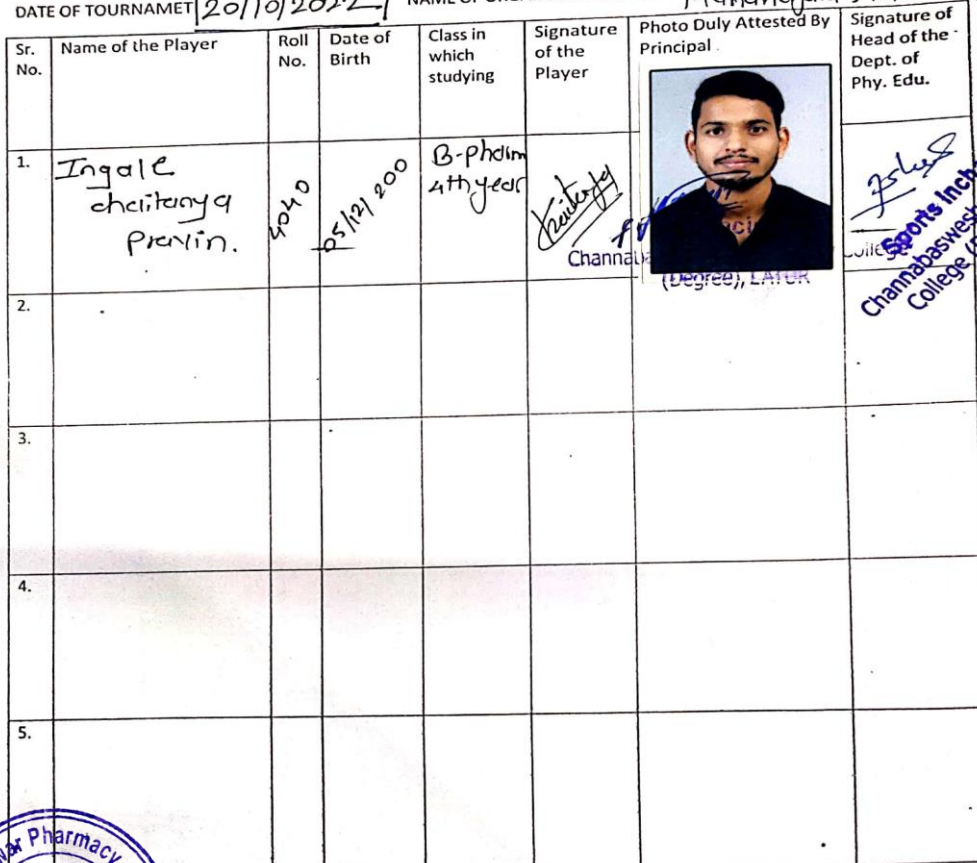 DATE OF TOURNAMET 20/10/2022
Sr. No.
Name of the Player
Roll No.
Date of Birth
Class in which studying
Signature of the Player
Photo Duly Attested By Principal
Signature of Head of the Dept. of Phy. Edu.
1.
Ingale
chaitanya
Pravin.
4040
05/12/200
B-pharm
4th year
(Degree), LATUR
Sports Inch
Channabaswesh
College
2.
3.
4.
5.
Pharmacy